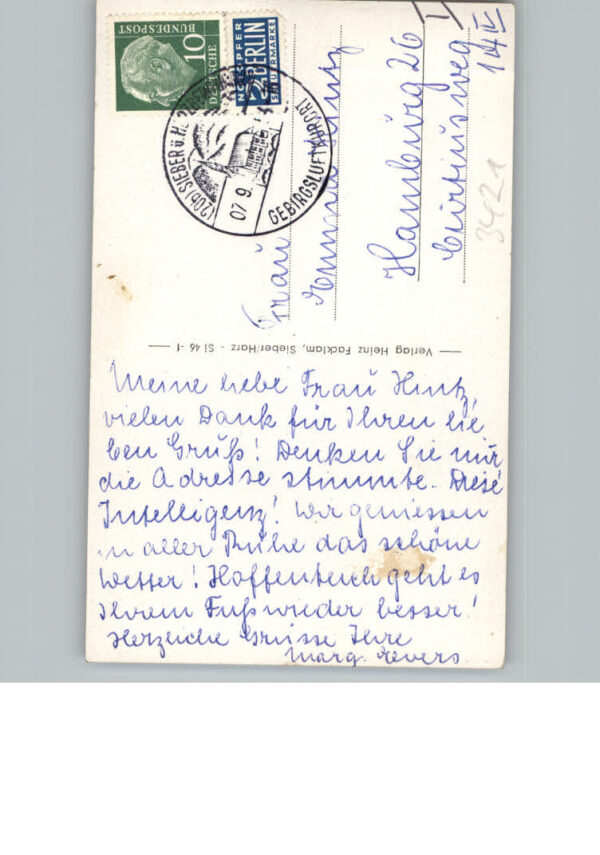 Meine liebe Frau Hintz,
vielen Dank für Ihren lie
ben Gruß! Denken Sie nur,
die Adresse stimmte. Diese
Intelligenz! Wir geniessen
in aller Ruhe das schöne
Wetter! Hoffentlich geht es
Ihrem Fuß wieder besser!
Herzliche Grüsse Ihre
Marg. Revers
Verlag Heinz Facklam, Sieber/Harz - Si 46 -1
Frau
Emma Hintz
Hamburg 26
Curtiusweg
14 IV
3421
10
DEUTSCHE
BUNDESPOST
NOTOPFER
2 BERLIN
STEUERMARKE
(20b) SIEBER ü. H
07.9.
GEBIRGSLUFTKURORT